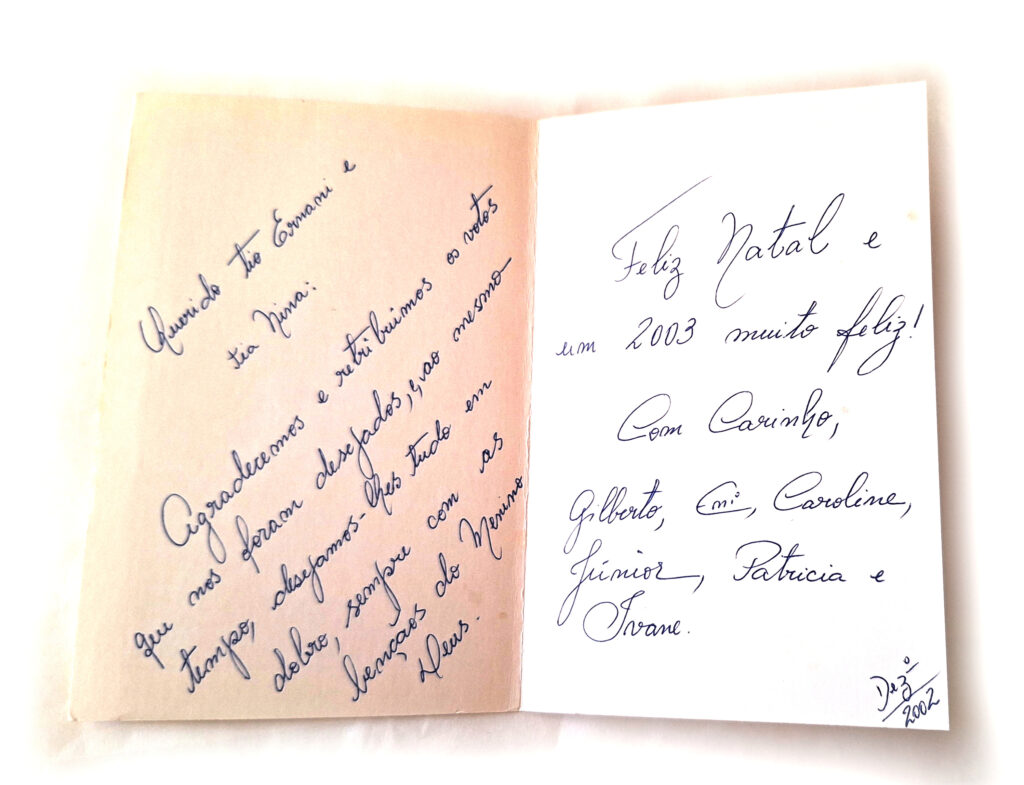 Querido tio Ernani e
tia Nina:
Agradecemos e retribuimos os votos
que nos foram desejados, e, ao mesmo
tempo, desejamos-lhes tudo em
dobro, sempre com as
bençãos do Menino
Deus.
Feliz Natal e
um 2003 muito feliz!
Com Carinho,
Gilberto, Eni, Caroline,
Júnior, Patricia e
Ivane.
Dez/2002